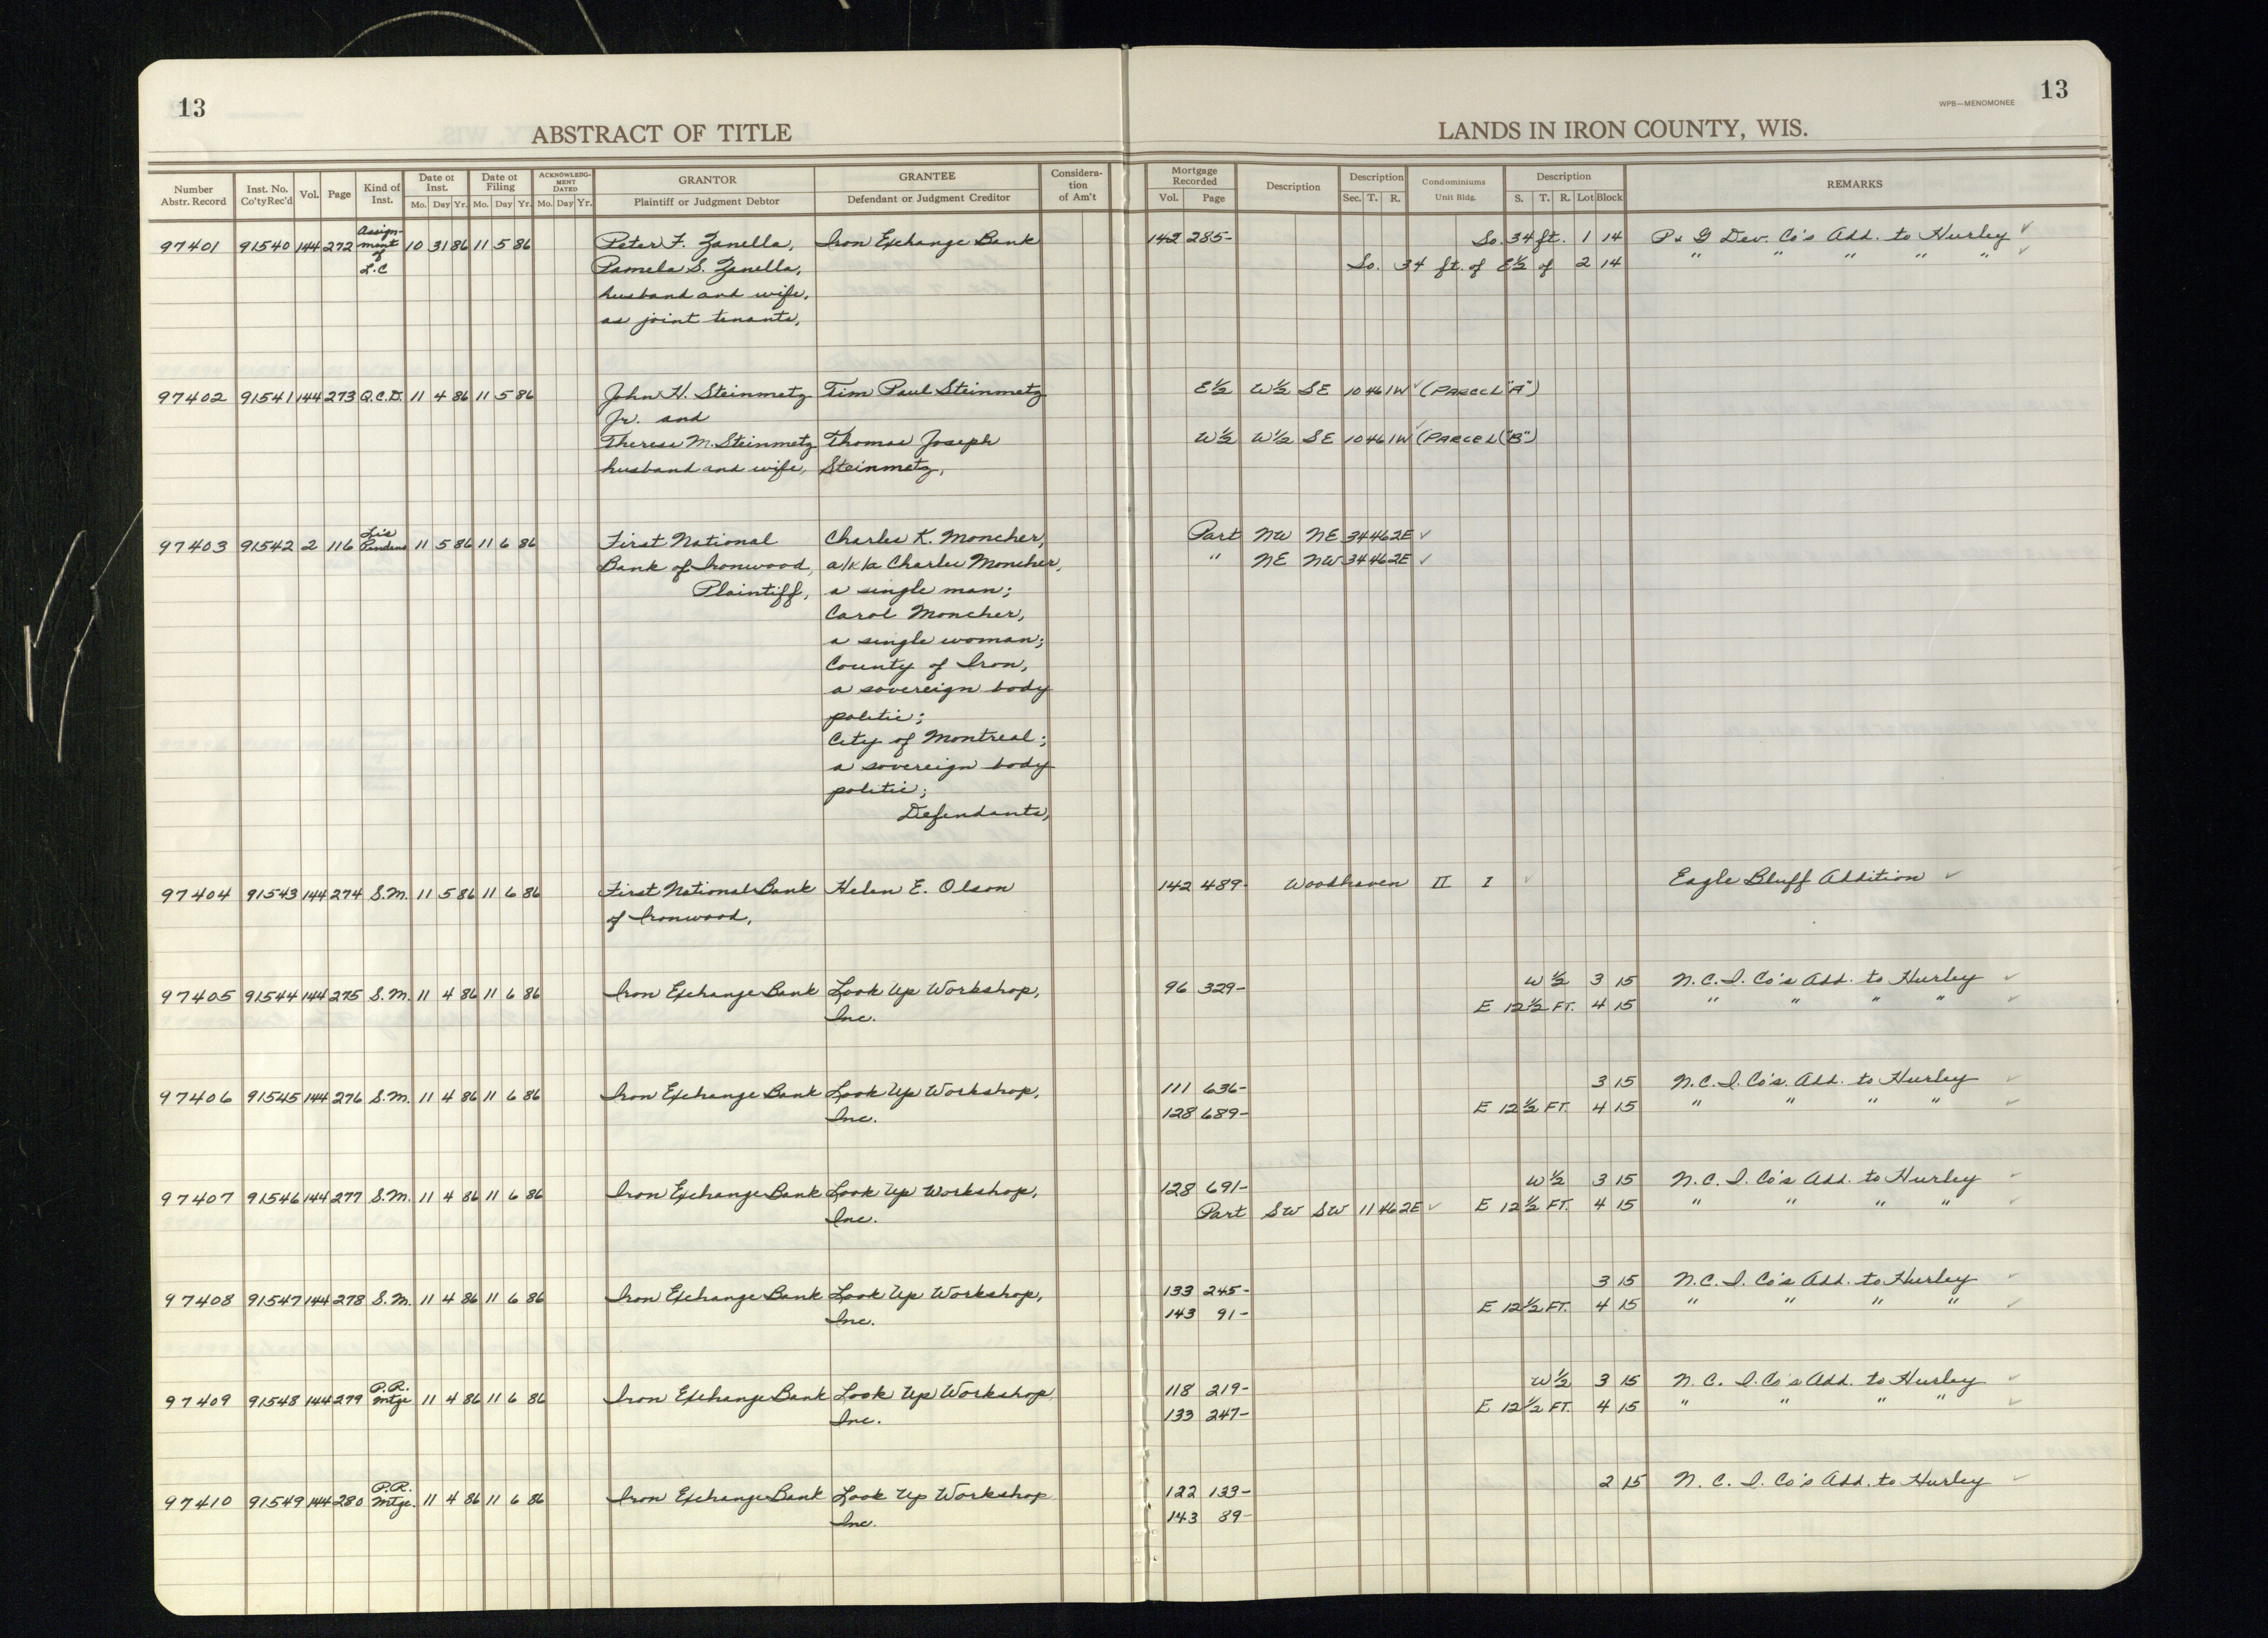 13
13
WPB—MENOMONEE
ABSTRACT OF TITLE
LANDS IN IRON COUNTY, WIS.
Number Abstr. Record | Inst. No. Co'ty Rec'd | Vol. | Page | Kind of Inst. | Date of Inst. Mo. Day Yr. | Date of Filing Mo. Day Yr. | ACKNOWLEDGMENT DATED Mo. Day Yr. | GRANTOR Plaintiff or Judgment Debtor | GRANTEE Defendant or Judgment Creditor | Consideration of Am't | Mortgage Recorded Vol. Page | Description | Description Sec. T. R. | Condominiums Unit Bldg. | Description S. T. R. Lot Block | REMARKS
97401 91540 144 272 Assignment of L.C 10 31 86 11 5 86 Peter F. Zanella, Iron Exchange Bank 142 285- So. 34 ft. 1 14 P & G Dev. Co's Add. to Hurley ✓
Pamela S. Zanella, So. 34 ft. of E½ of 2 14 " " " " " ✓
husband and wife,
as joint tenants,
97402 91541 144 273 Q.C.D. 11 4 86 11 5 86 John H. Steinmetz Tim Paul Steinmetz E½ W½ SE 10 46 1W ✓ (PARCEL "A")
Jr. and
Therese M. Steinmetz Thomas Joseph W½ W½ SE 10 46 1W ✓ (PARCEL "B")
husband and wife, Steinmetz,
97403 91542 2 116 Lis Pendens 11 5 86 11 6 86 First National Charles K. Moncher, Part NW NE 34 46 2E ✓
Bank of Ironwood, a/k/a Charles Moncher, " NE NW 34 46 2E ✓
Plaintiff, a single man;
Carol Moncher,
a single woman;
County of Iron,
a sovereign body
politic;
City of Montreal;
a sovereign body
politic;
Defendants,
97404 91543 144 274 S.M. 11 5 86 11 6 86 First National Bank Helen E. Olson 142 489- Woodhaven II I ✓ Eagle Bluff Addition ✓
of Ironwood,
97405 91544 144 275 S.M. 11 4 86 11 6 86 Iron Exchange Bank Look Up Workshop, 96 329- W½ 3 15 N.C.I. Co's Add. to Hurley ✓
Inc. E 12½ FT. 4 15 " " " " ✓
97406 91545 144 276 S.M. 11 4 86 11 6 86 Iron Exchange Bank Look Up Workshop, 111 636- 3 15 N.C.I. Co's. Add. to Hurley ✓
Inc. 128 689- E 12½ FT. 4 15 " " " " ✓
97407 91546 144 277 S.M. 11 4 86 11 6 86 Iron Exchange Bank Look Up Workshop, 128 691- W½ 3 15 N.C.I. Co's Add. to Hurley ✓
Inc. Part SW SW 11 46 2E ✓ E 12½ FT. 4 15 " " " " ✓
97408 91547 144 278 S.M. 11 4 86 11 6 86 Iron Exchange Bank Look Up Workshop, 133 245- 3 15 N.C.I. Co's Add. to Hurley ✓
Inc. 143 91- E 12½ FT. 4 15 " " " " ✓
97409 91548 144 279 P.R. Mtge 11 4 86 11 6 86 Iron Exchange Bank Look Up Workshop 118 219- W½ 3 15 N.C. I. Co's Add. to Hurley ✓
Inc. 133 247- E 12½ FT. 4 15 " " " " ✓
97410 91549 144 280 P.R. Mtge. 11 4 86 11 6 86 Iron Exchange Bank Look Up Workshop 122 133- 2 15 N. C. I. Co's Add. to Hurley ✓
Inc. 143 89-